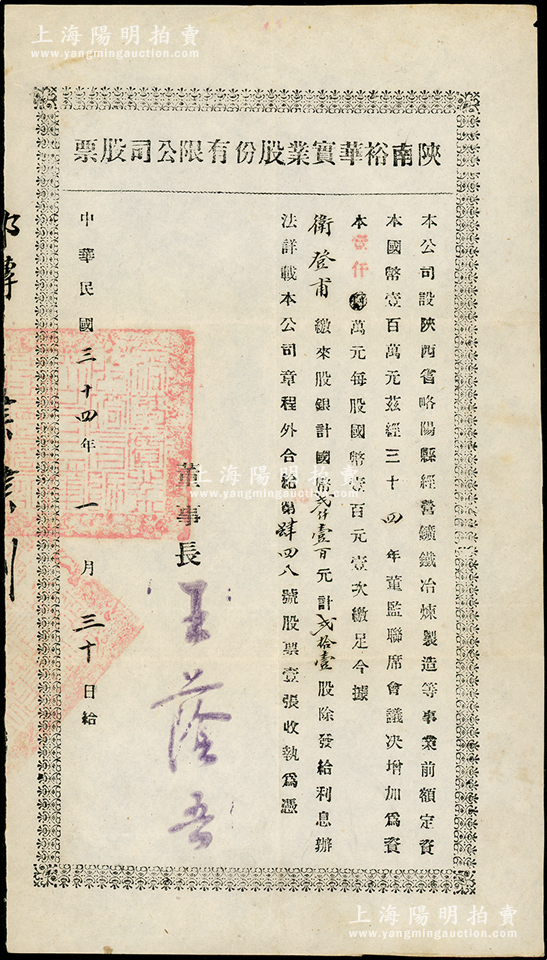 上海陽明拍賣
www.yangmingauction.com
陝南裕華實業股份有限公司股票
本公司設陝西省略陽縣經營鑛鐵冶煉製造等事業前額定資
本國幣壹百萬元茲經三十四年董監聯席會議決增加爲資
本壹仟萬元每股國幣壹百元壹次繳足今據
衛登甫繳來股銀計國幣貳仟壹百元計貳拾壹股除發給利息辦
法詳載本公司章程外合給第肆四八號股票壹張收執爲憑
董事長王蔭吾
中華民國三十四年一月三十日給
上海陽明拍賣
www.yangmingauction.com
上海陽明拍賣
www.yangmingauction.com